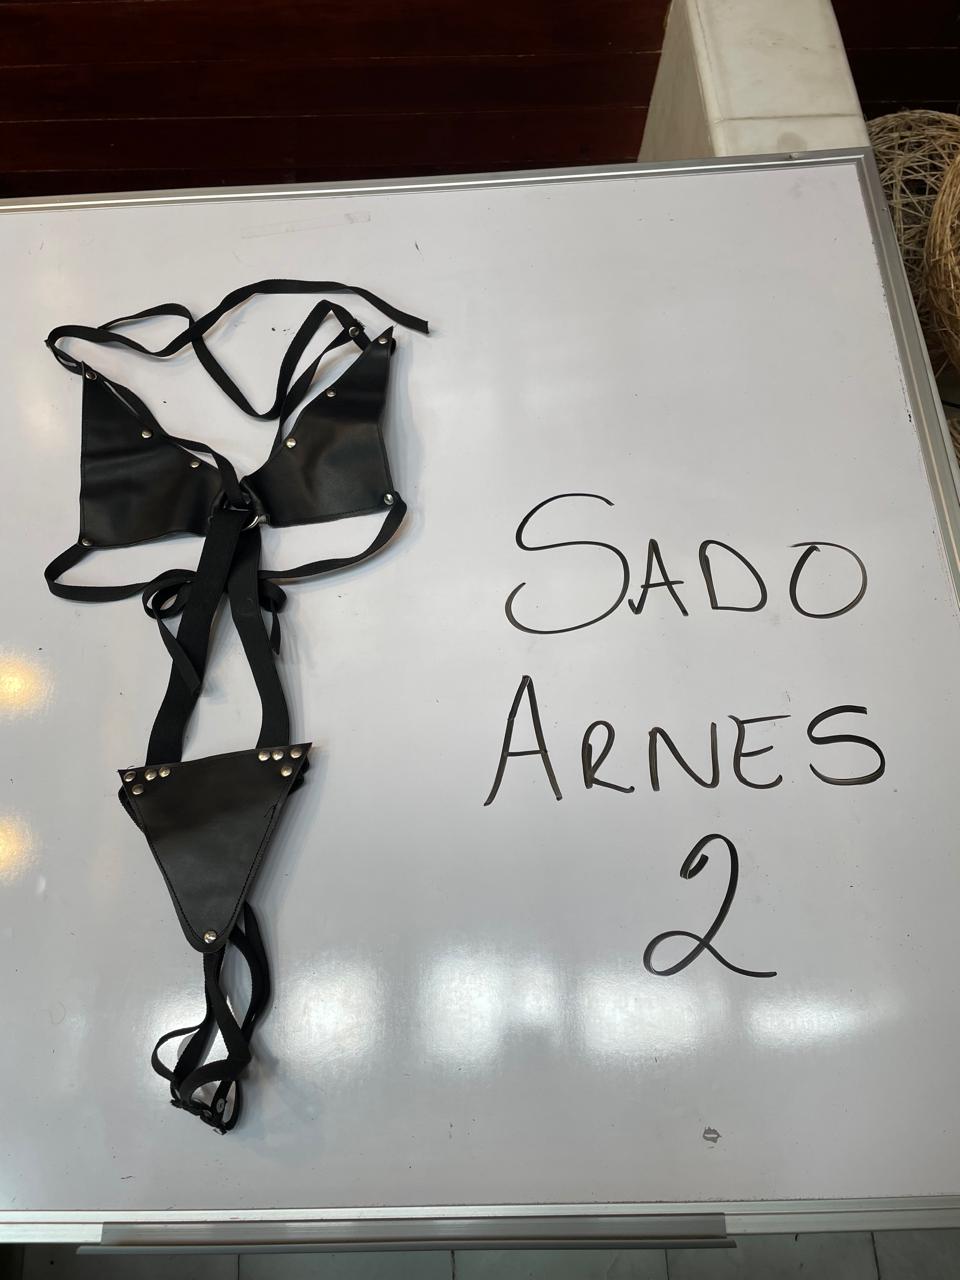 SADO
ARNES
2